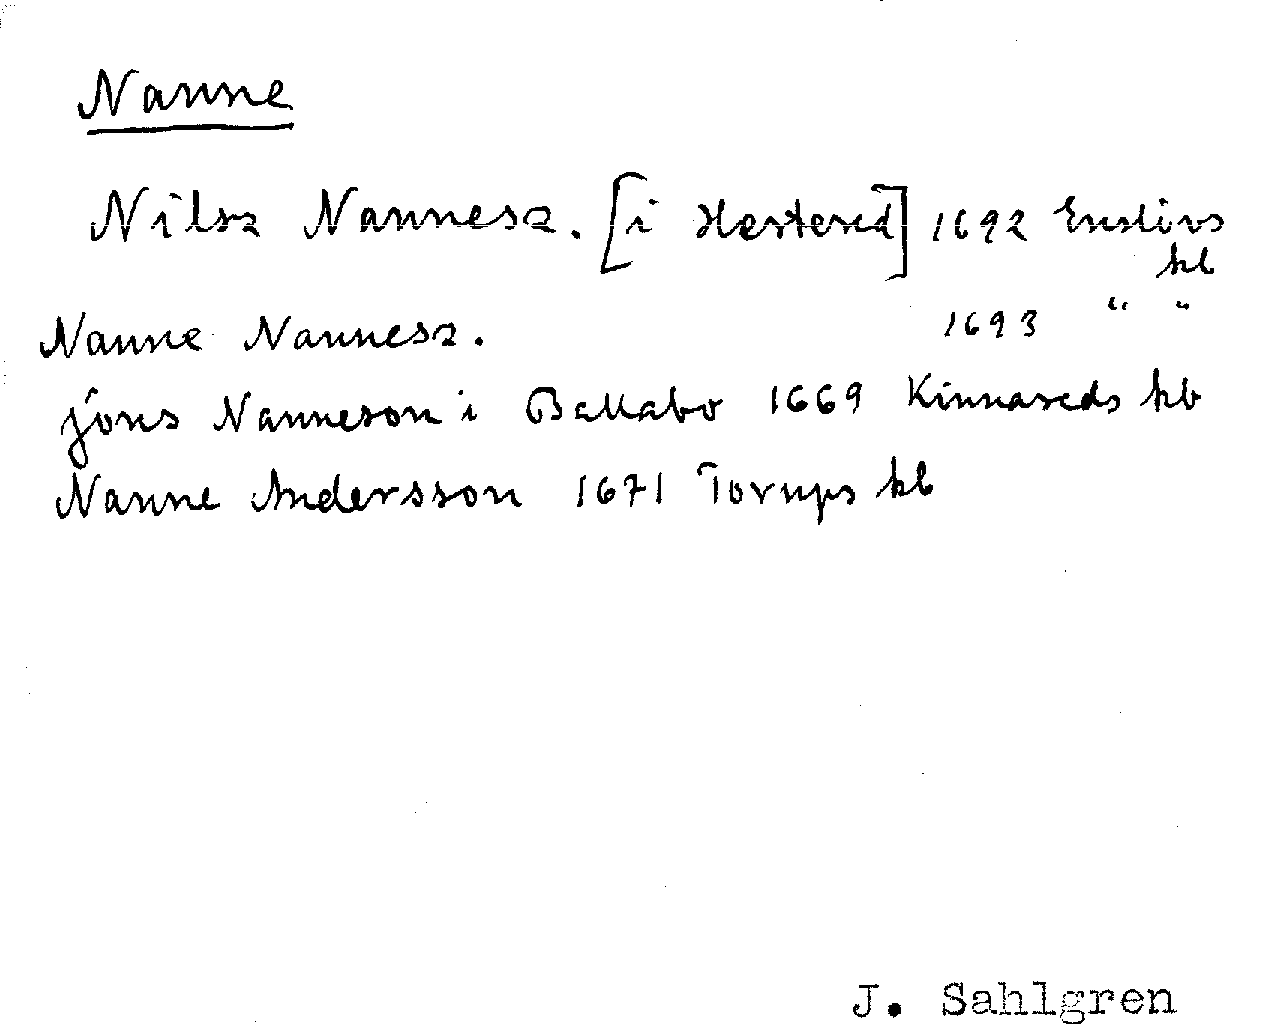 Nanne
Nilsz Nannesz. [i Hestered] 1692 Enslövs
kb
Nanne Nannesz. 1693 " "
Jöns Nanneson i Ballabo 1669 Kinnareds kb
Nanne Andersson 1671 Torups kb
J. Sahlgren